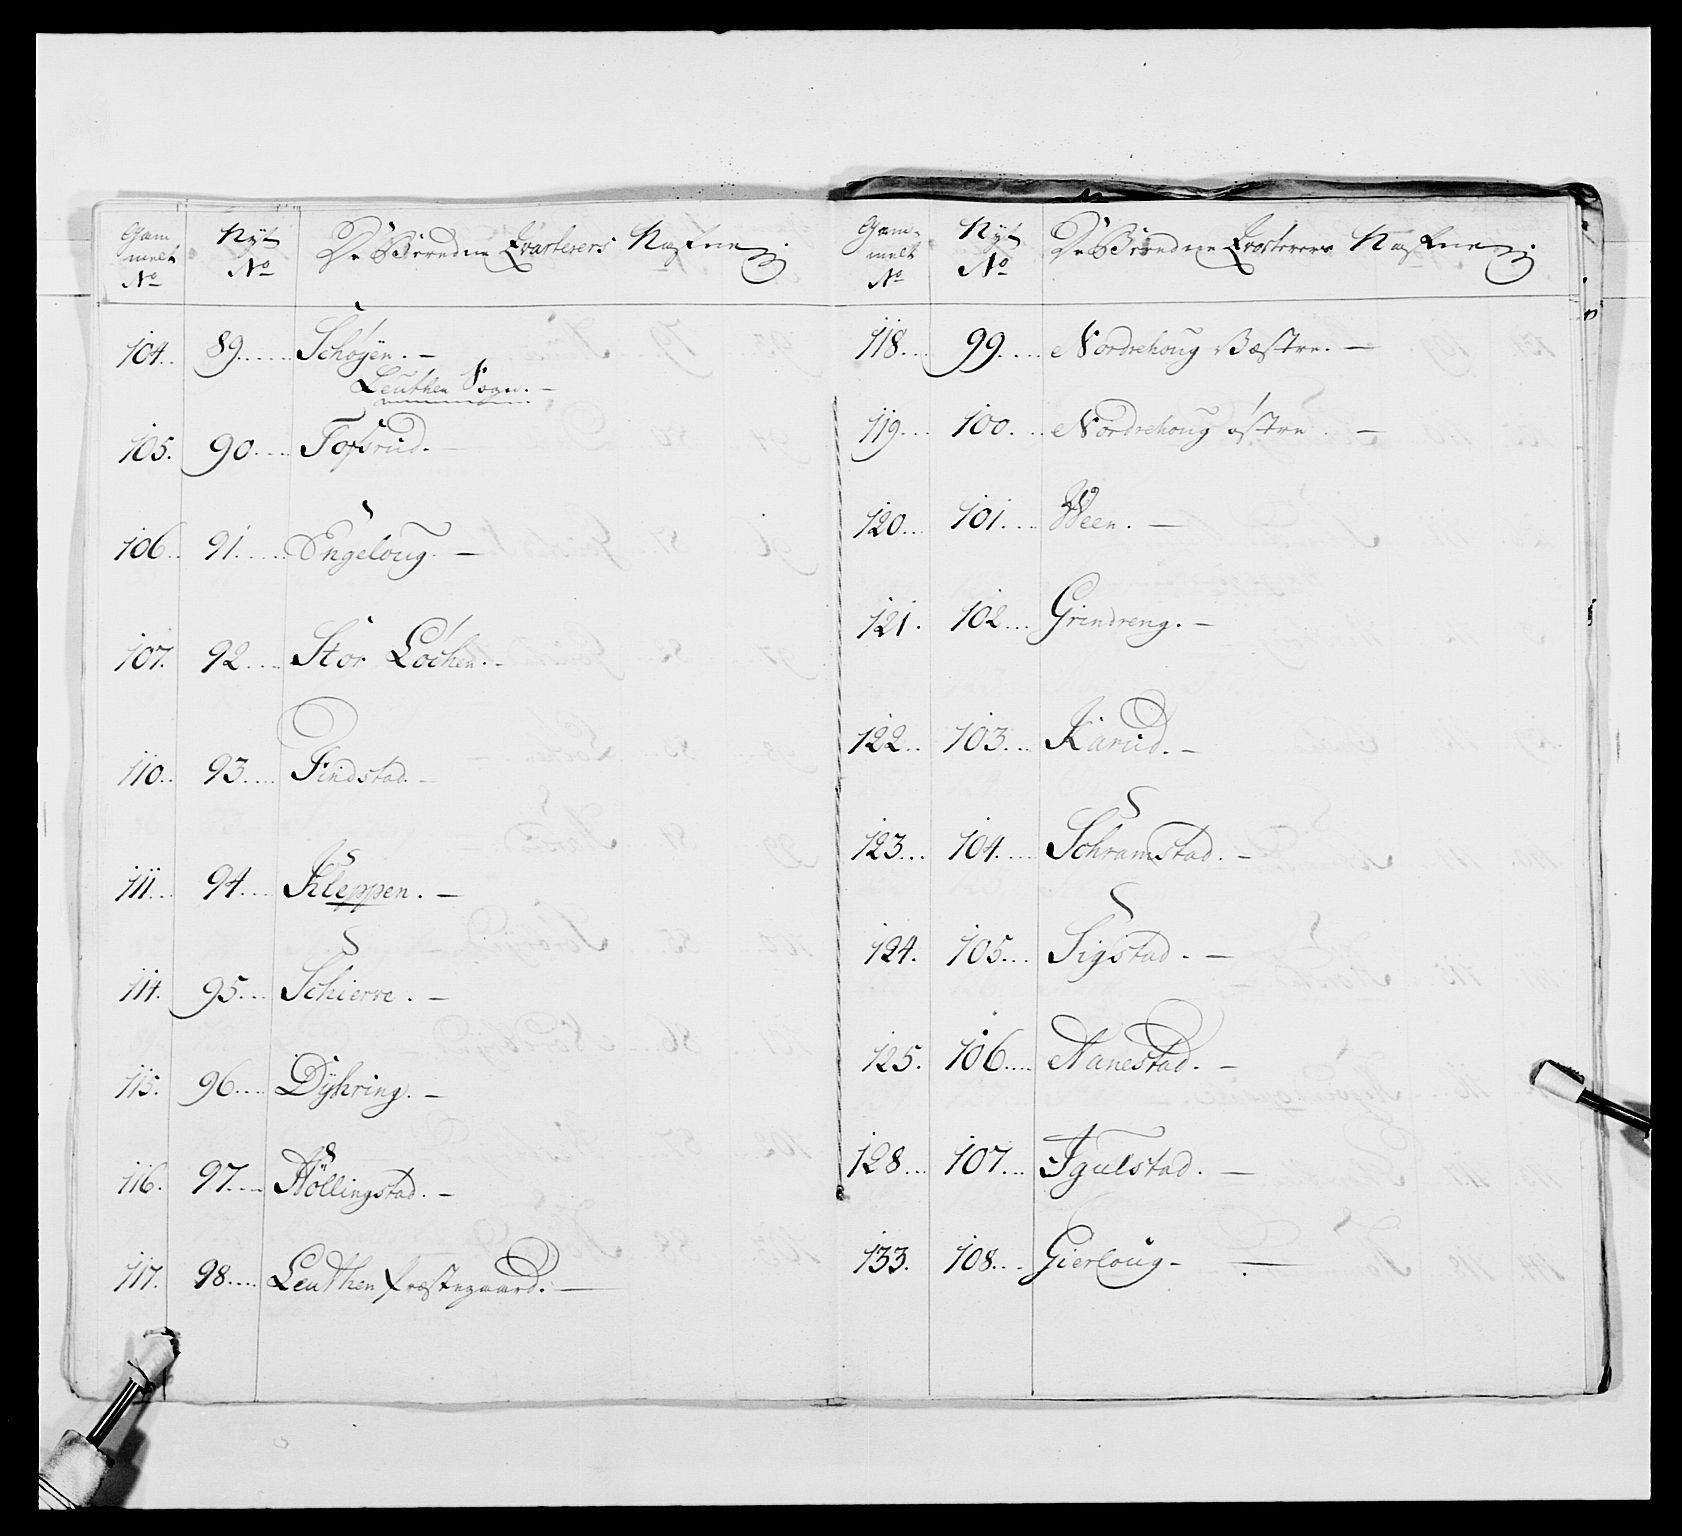 Gam melt No Nyt No De Beredne Qvarterers Nafne
104. 89. Schøyen.
Leuthen Sogn.
105. 90. Tofsrud.
106. 91. Engeloug.
107. 92. Stor Løchen.
110. 93. Findstad.
111. 94. Kleppen.
114. 95. Schierve.
115. 96. Dÿhring.
116. 97. Høllingstad.
117. 98. Leuthen Præstegaard.
Gam- melt No Nyt No De Beredne Qvarterers Nafne
118. 99. Nordrehoug Væstre.
119. 100. Nordrehoug østre
120. 101. Ween.
121. 102. Grindreng.
122. 103. Kârud.
123. 104. Schramstad.
124. 105. Sigstad.
125. 106. Nanestad.
128. 107. Igulstad.
133. 108. Gierloug